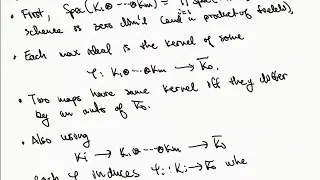 • First, Spec(K₁⊗···⊗Kₘ) = 
scheme is zero dim'l (and is product of fields),
• Each max ideal is the kernel of some
φ: K₁⊗···⊗Kₘ → K̄₀.
• Two maps have same kernel iff they differ
by an auto of K̄₀.
• Also using
Kᵢ → K₁⊗···⊗Kₘ → K̄₀
each φ induces φᵢ: Kᵢ→K̄₀